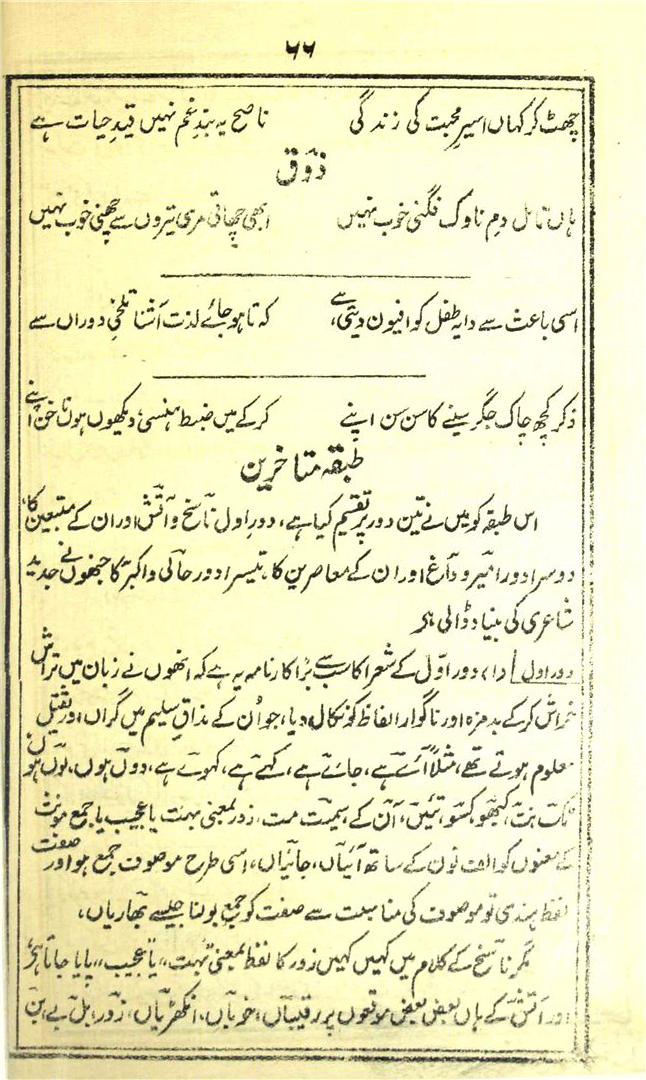 ۶۶
چھٹ کر کہاں اسیرِ محبت کی زندگی ناصح یہ بندِ غم نہیں قیدِ حیات ہے
ذوق
ہاں تامل دمِ ناوک فگنی خوب نہیں ابھی چھاتی مری تیروں سے چھنی خوب نہیں
اسی باعث سے دایہ طفل کو افیون دیتی ہے کہ تا ہو جائے لذت آشنا تلخیِ دوراں سے
ذکر کچھ چاک جگر سینے کا سن سن اپنے کر کے میں ضبط ہنسی دیکھوں ہوں ناخن اپنے
طبقہ متاخرین
اس طبقہ کو میں نے تین دور پر تقسیم کیا ہے، دورِ اول ناسخ و آتش اور ان کے متبعین کا،
دوسرا دور امیر و داغ اور ان کے معاصرین کا، تیسرا دور حالی و اکبر کا جنھوں نے جدید
شاعری کی بنیاد ڈالی ہے
دور اول (۱) دورِ اوّل کے شعرا کا سب سے بڑا کارنامہ یہ ہے کہ انھوں نے زبان میں تراش
خراش کر کے بدمزہ اور ناگوار الفاظ کو نکال دیا، جو اُن کے مذاقِ سلیم میں گراں اور ثقیل
معلوم ہوتے تھے، مثلاً آئے ہے، جائے ہے، کہے ہے، کہوے ہے، دوں ہوں، لوں ہوں
نت، کبھو کسو تئیں، اُن کے سمیت مت، زور بمعنی بہت یا عجیب یا جمع مونث
کے صیغوں کو الف نون کے ساتھ آئیاں، جائیاں، اسی طرح موصوف جمع ہو اور صفت
لفظ ہندی تو موصوف کی مناسبت سے صفت کو جمع بولنا جیسے بھاریاں،
مگر ناسخ کے کلام میں کہیں کہیں زور کا لفظ بمعنی "بہت" یا "عجیب" پایا جاتا ہے
اور آتش کے ہاں بعض بعض موقعوں پر رقیباں، خوباں، انکھڑیاں، زور، بل بے، بن